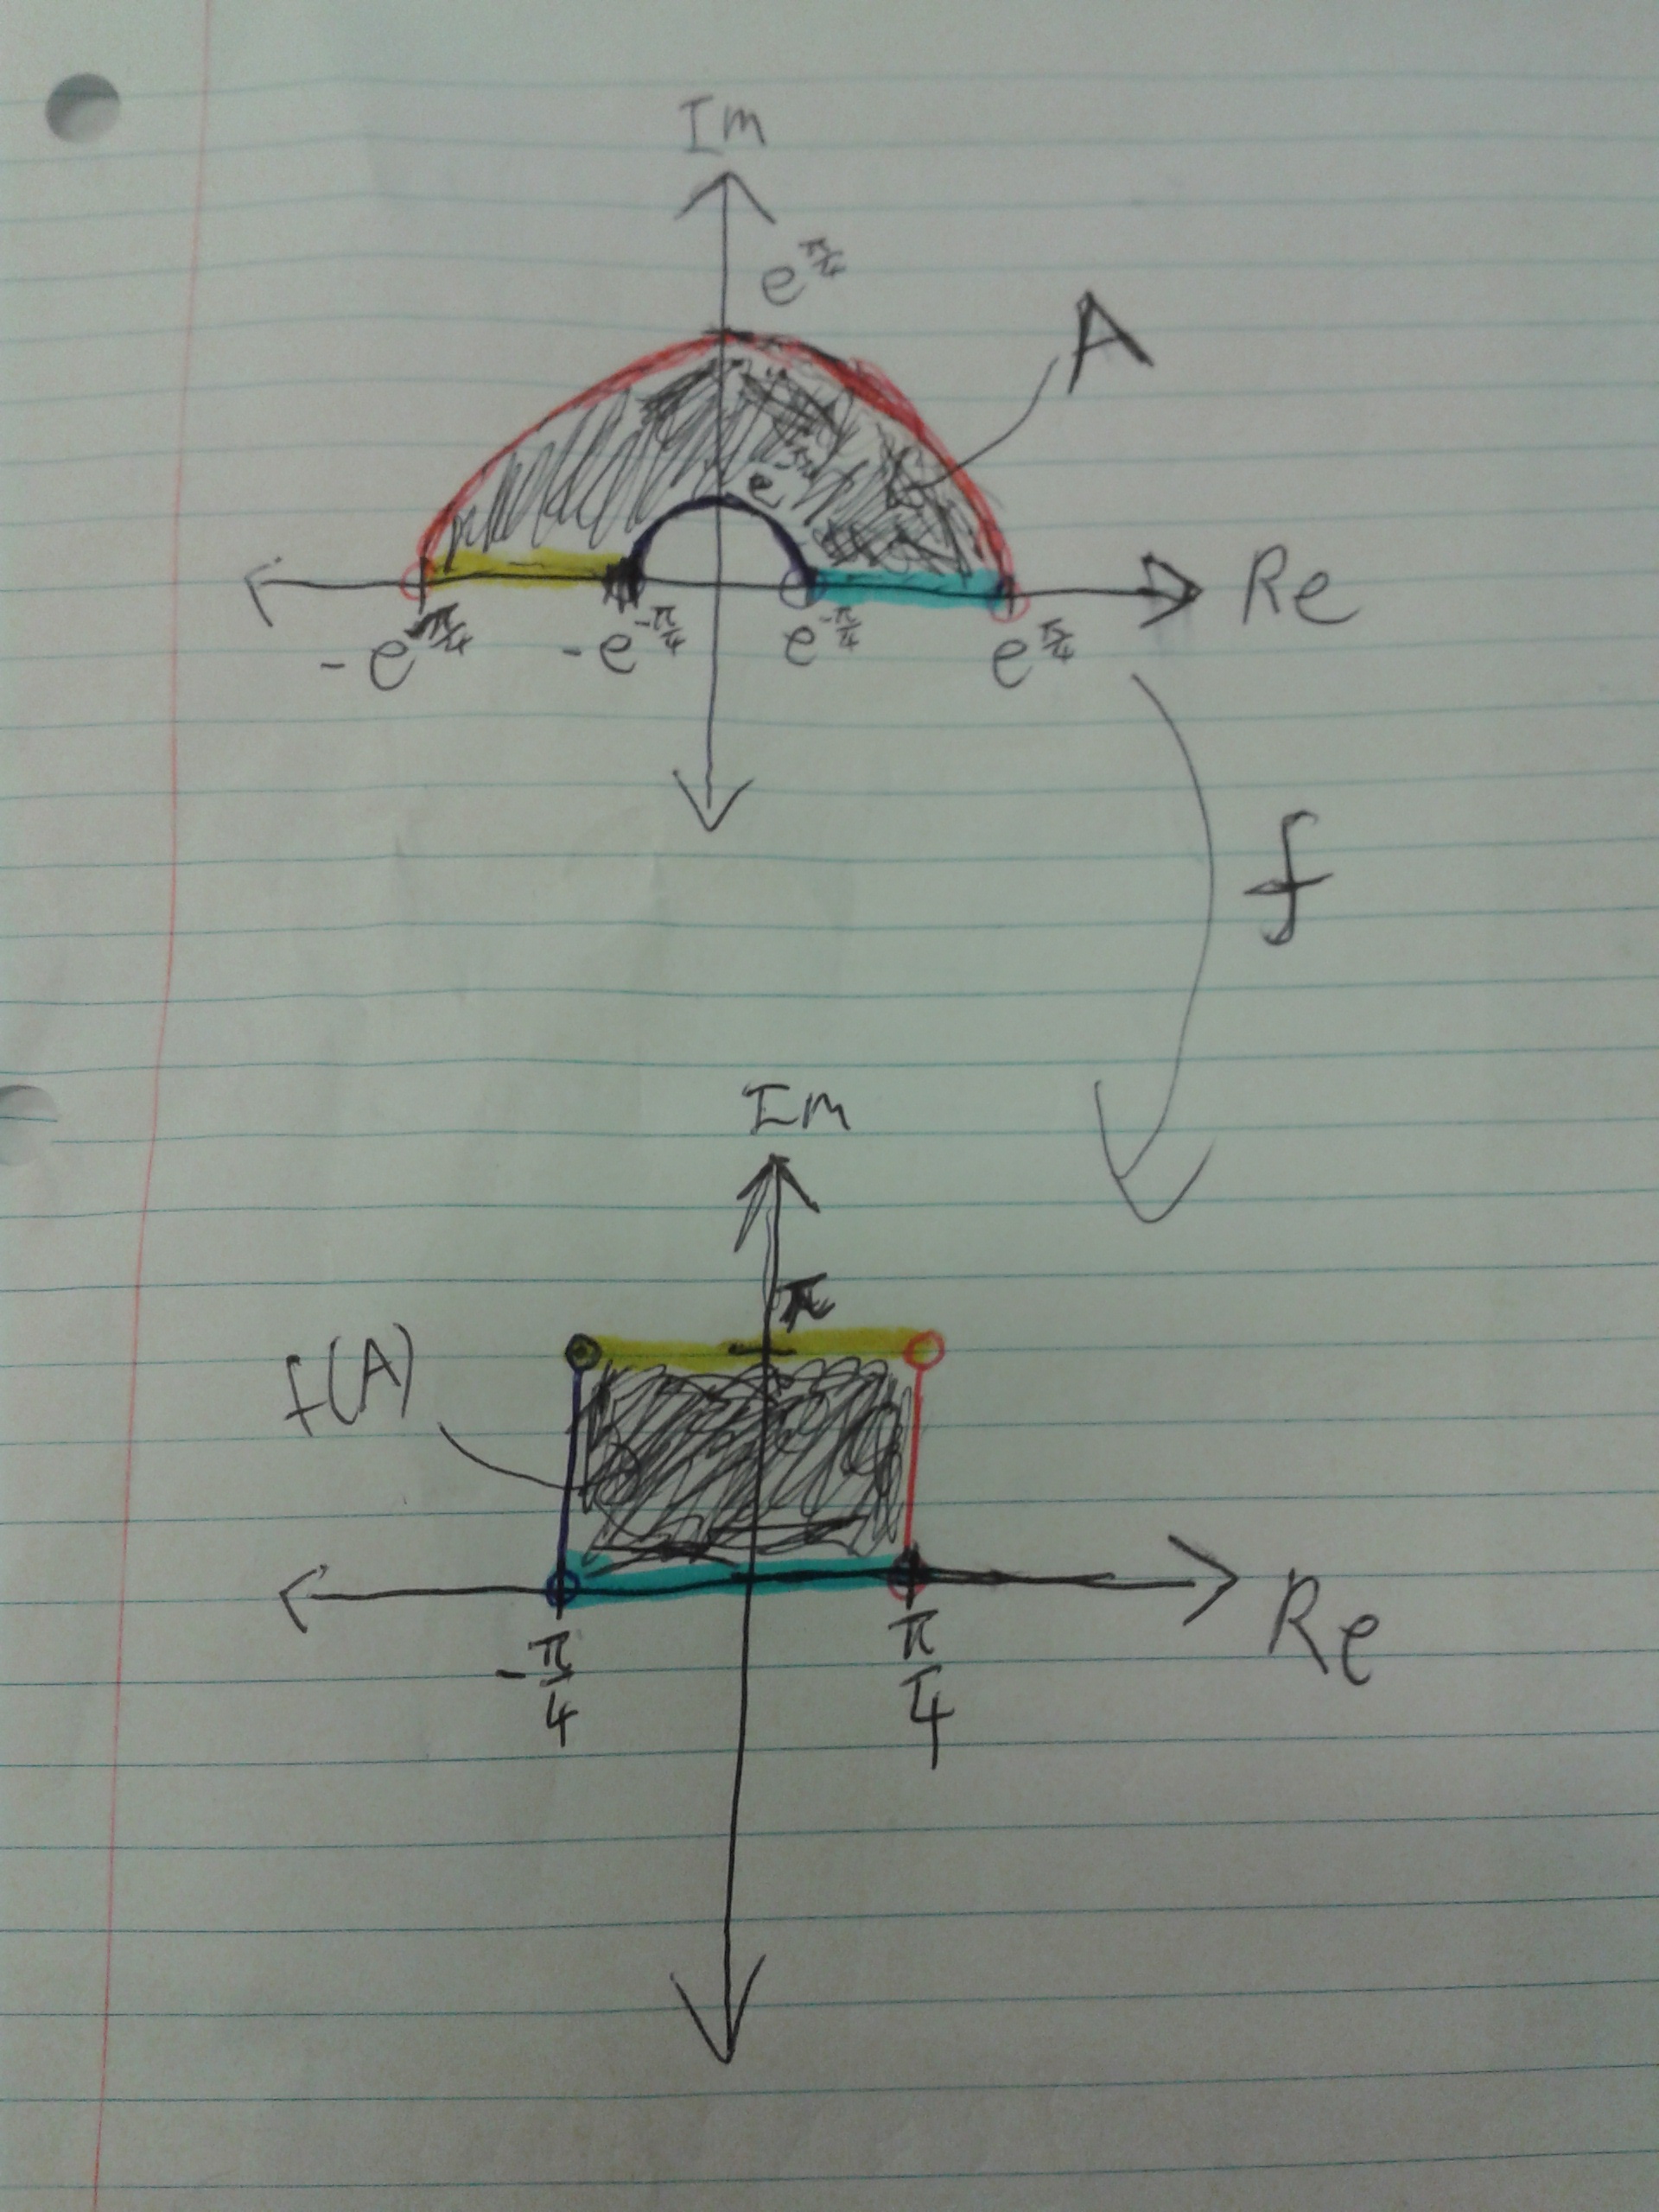 Im
e^{π/4}
A
e^{-π/4}
Re
-e^{π/4} -e^{-π/4} e^{-π/4} e^{π/4}
f
Im
π
f(A)
Re
-π/4 π/4